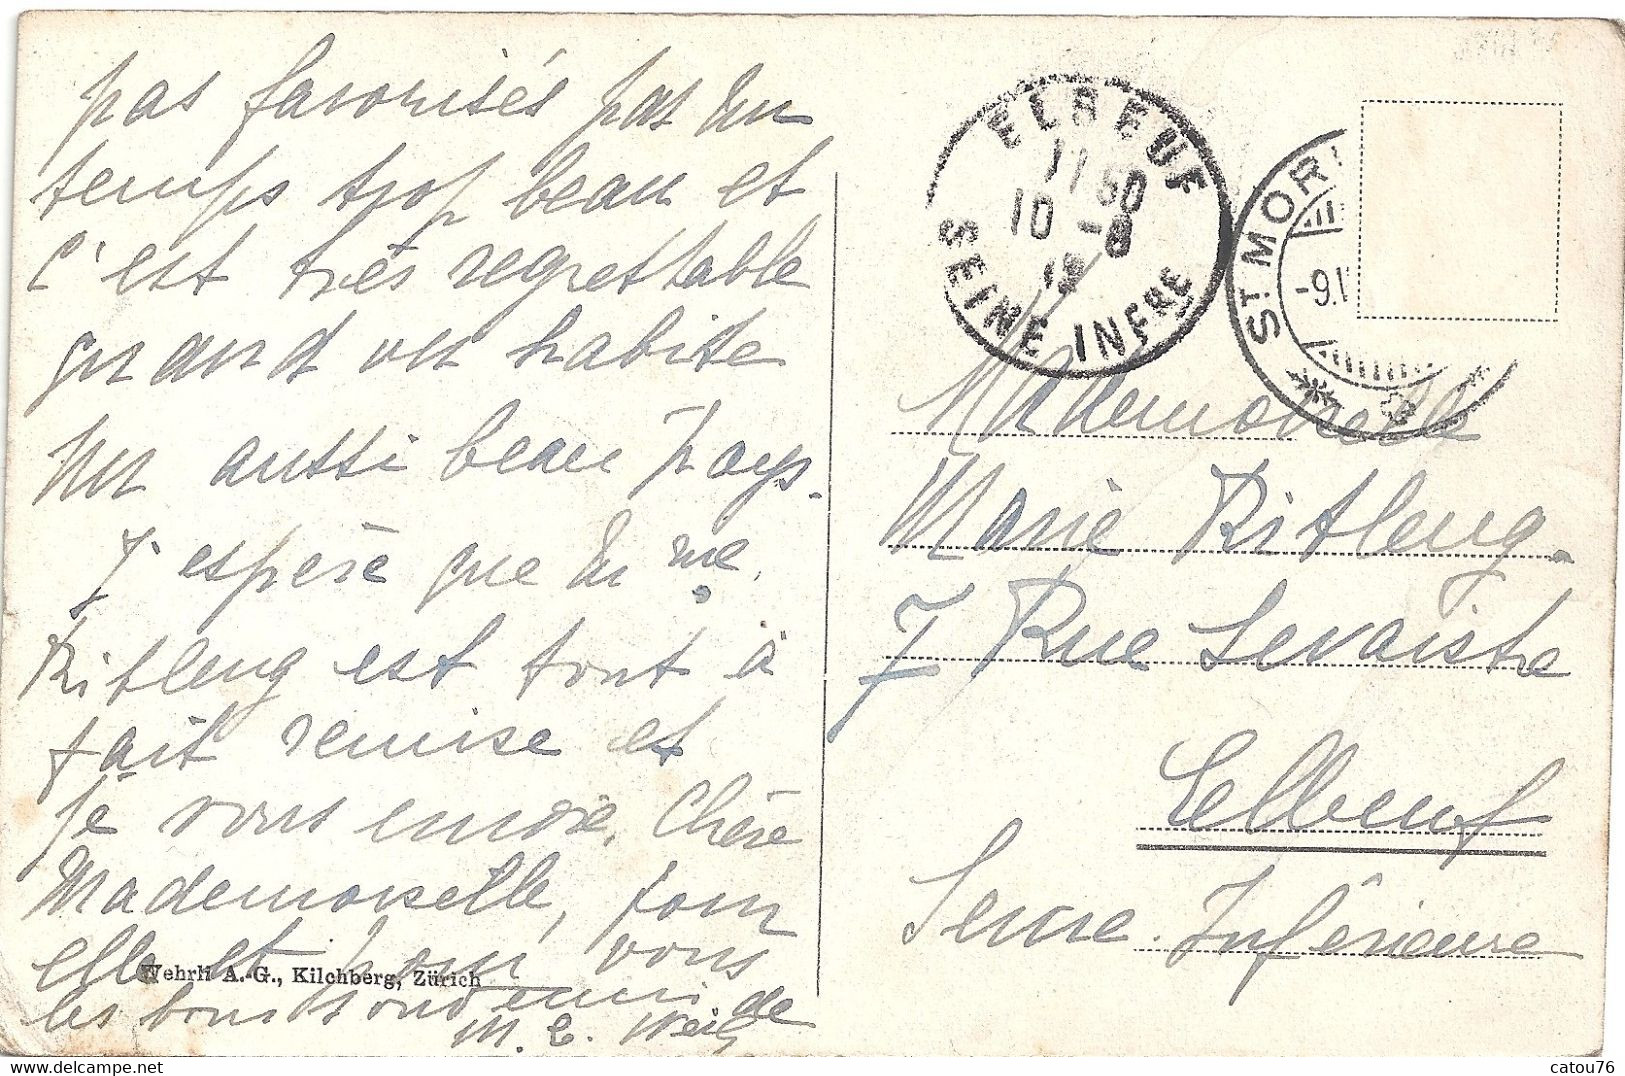 pas favorisés par un
temps trop beau et
c'est très regrettable
quand on habite
un aussi beau pays.
J'espère que Mme
Ritleng est tout à
fait remise et
je vous envoie, Chère
Mademoiselle, pour
elle et pour vous
les bons souvenirs de
M. E. Weil
Wehrli A.-G., Kilchberg, Zürich
ELBEUF
11 50
10 -8
SEINE INFRE
ST. MORI
-9.
Mademoiselle
Marie Ritleng
7 Rue Sevaistre
Elbeuf
Seine Inférieure
catou76